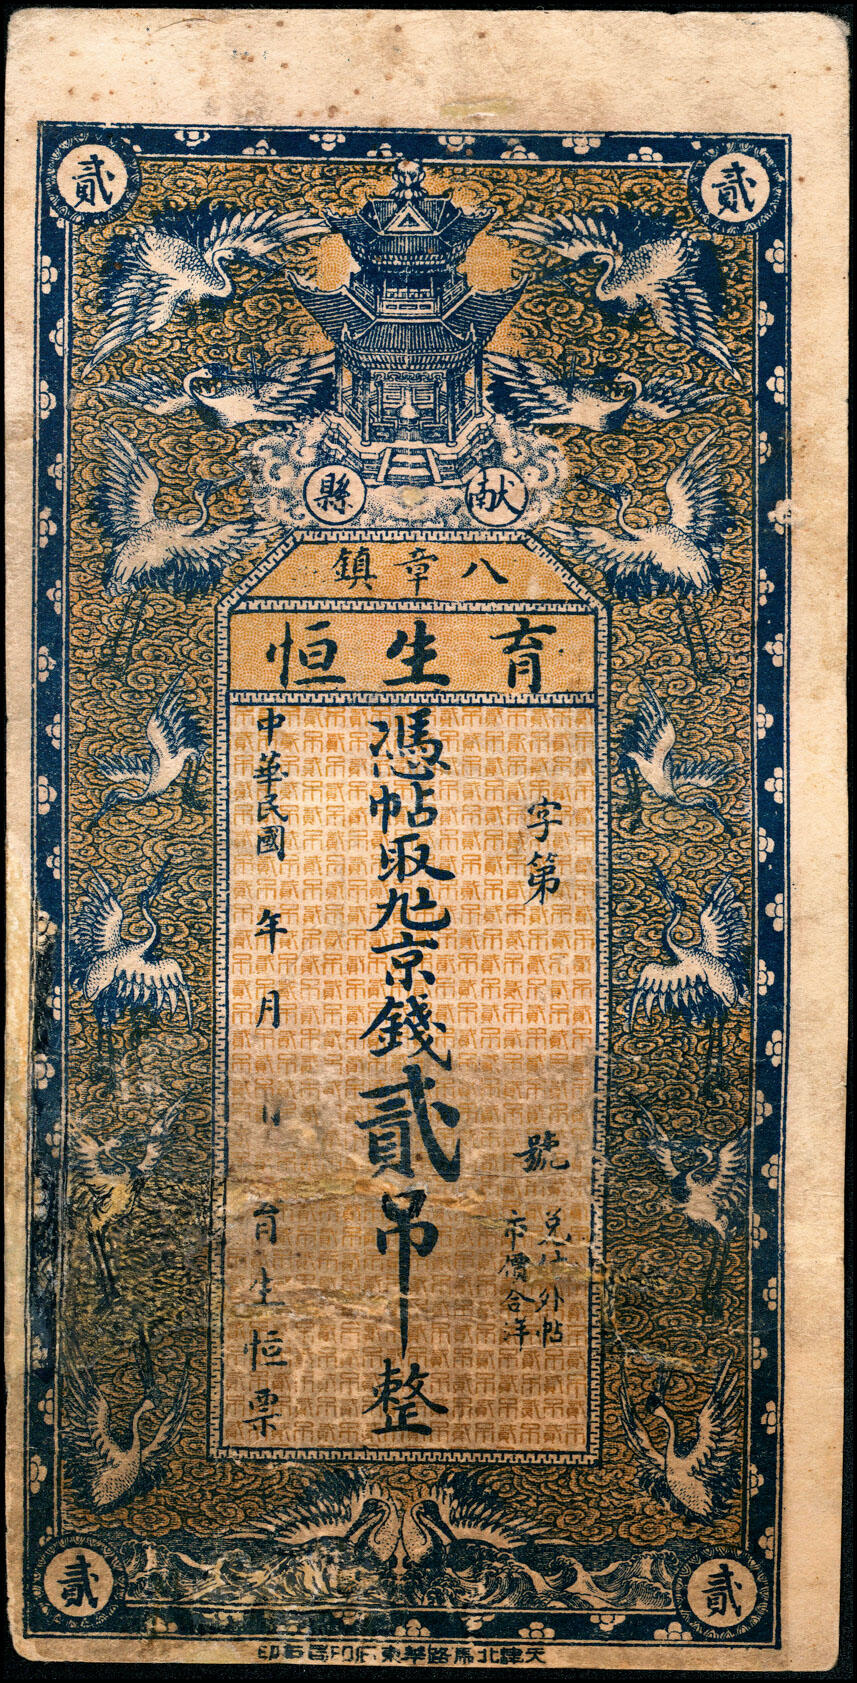 貳
貳
献縣
八章鎮
育生恒
字第 號
兑 外帖
市價合洋
憑帖取 京錢貳吊整
中華民國 年 月 日 育生恒票
貳
貳
天津北馬路華東石印局 印